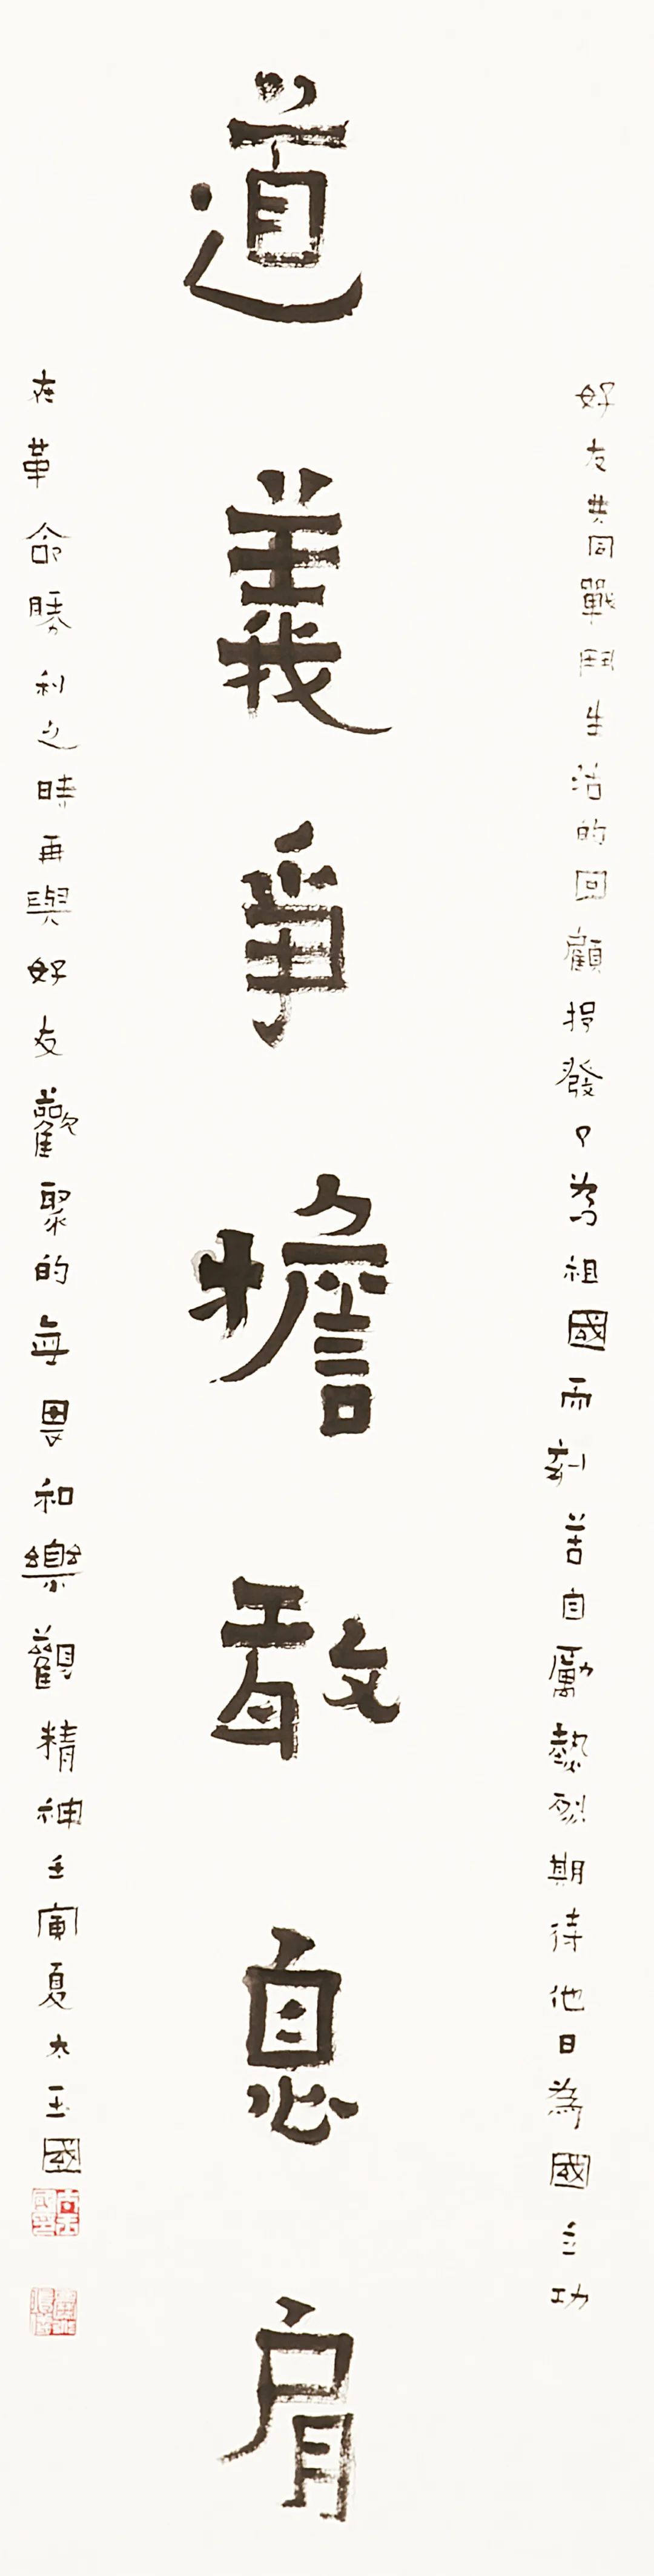 好友共同戰鬥生活的回顧抒發了為祖國而刻苦自勵熱烈期待他日為國立功
道義爭擔敢息肩
在革命勝利之時再與好友歡聚的無畏和樂觀精神壬寅夏玉國